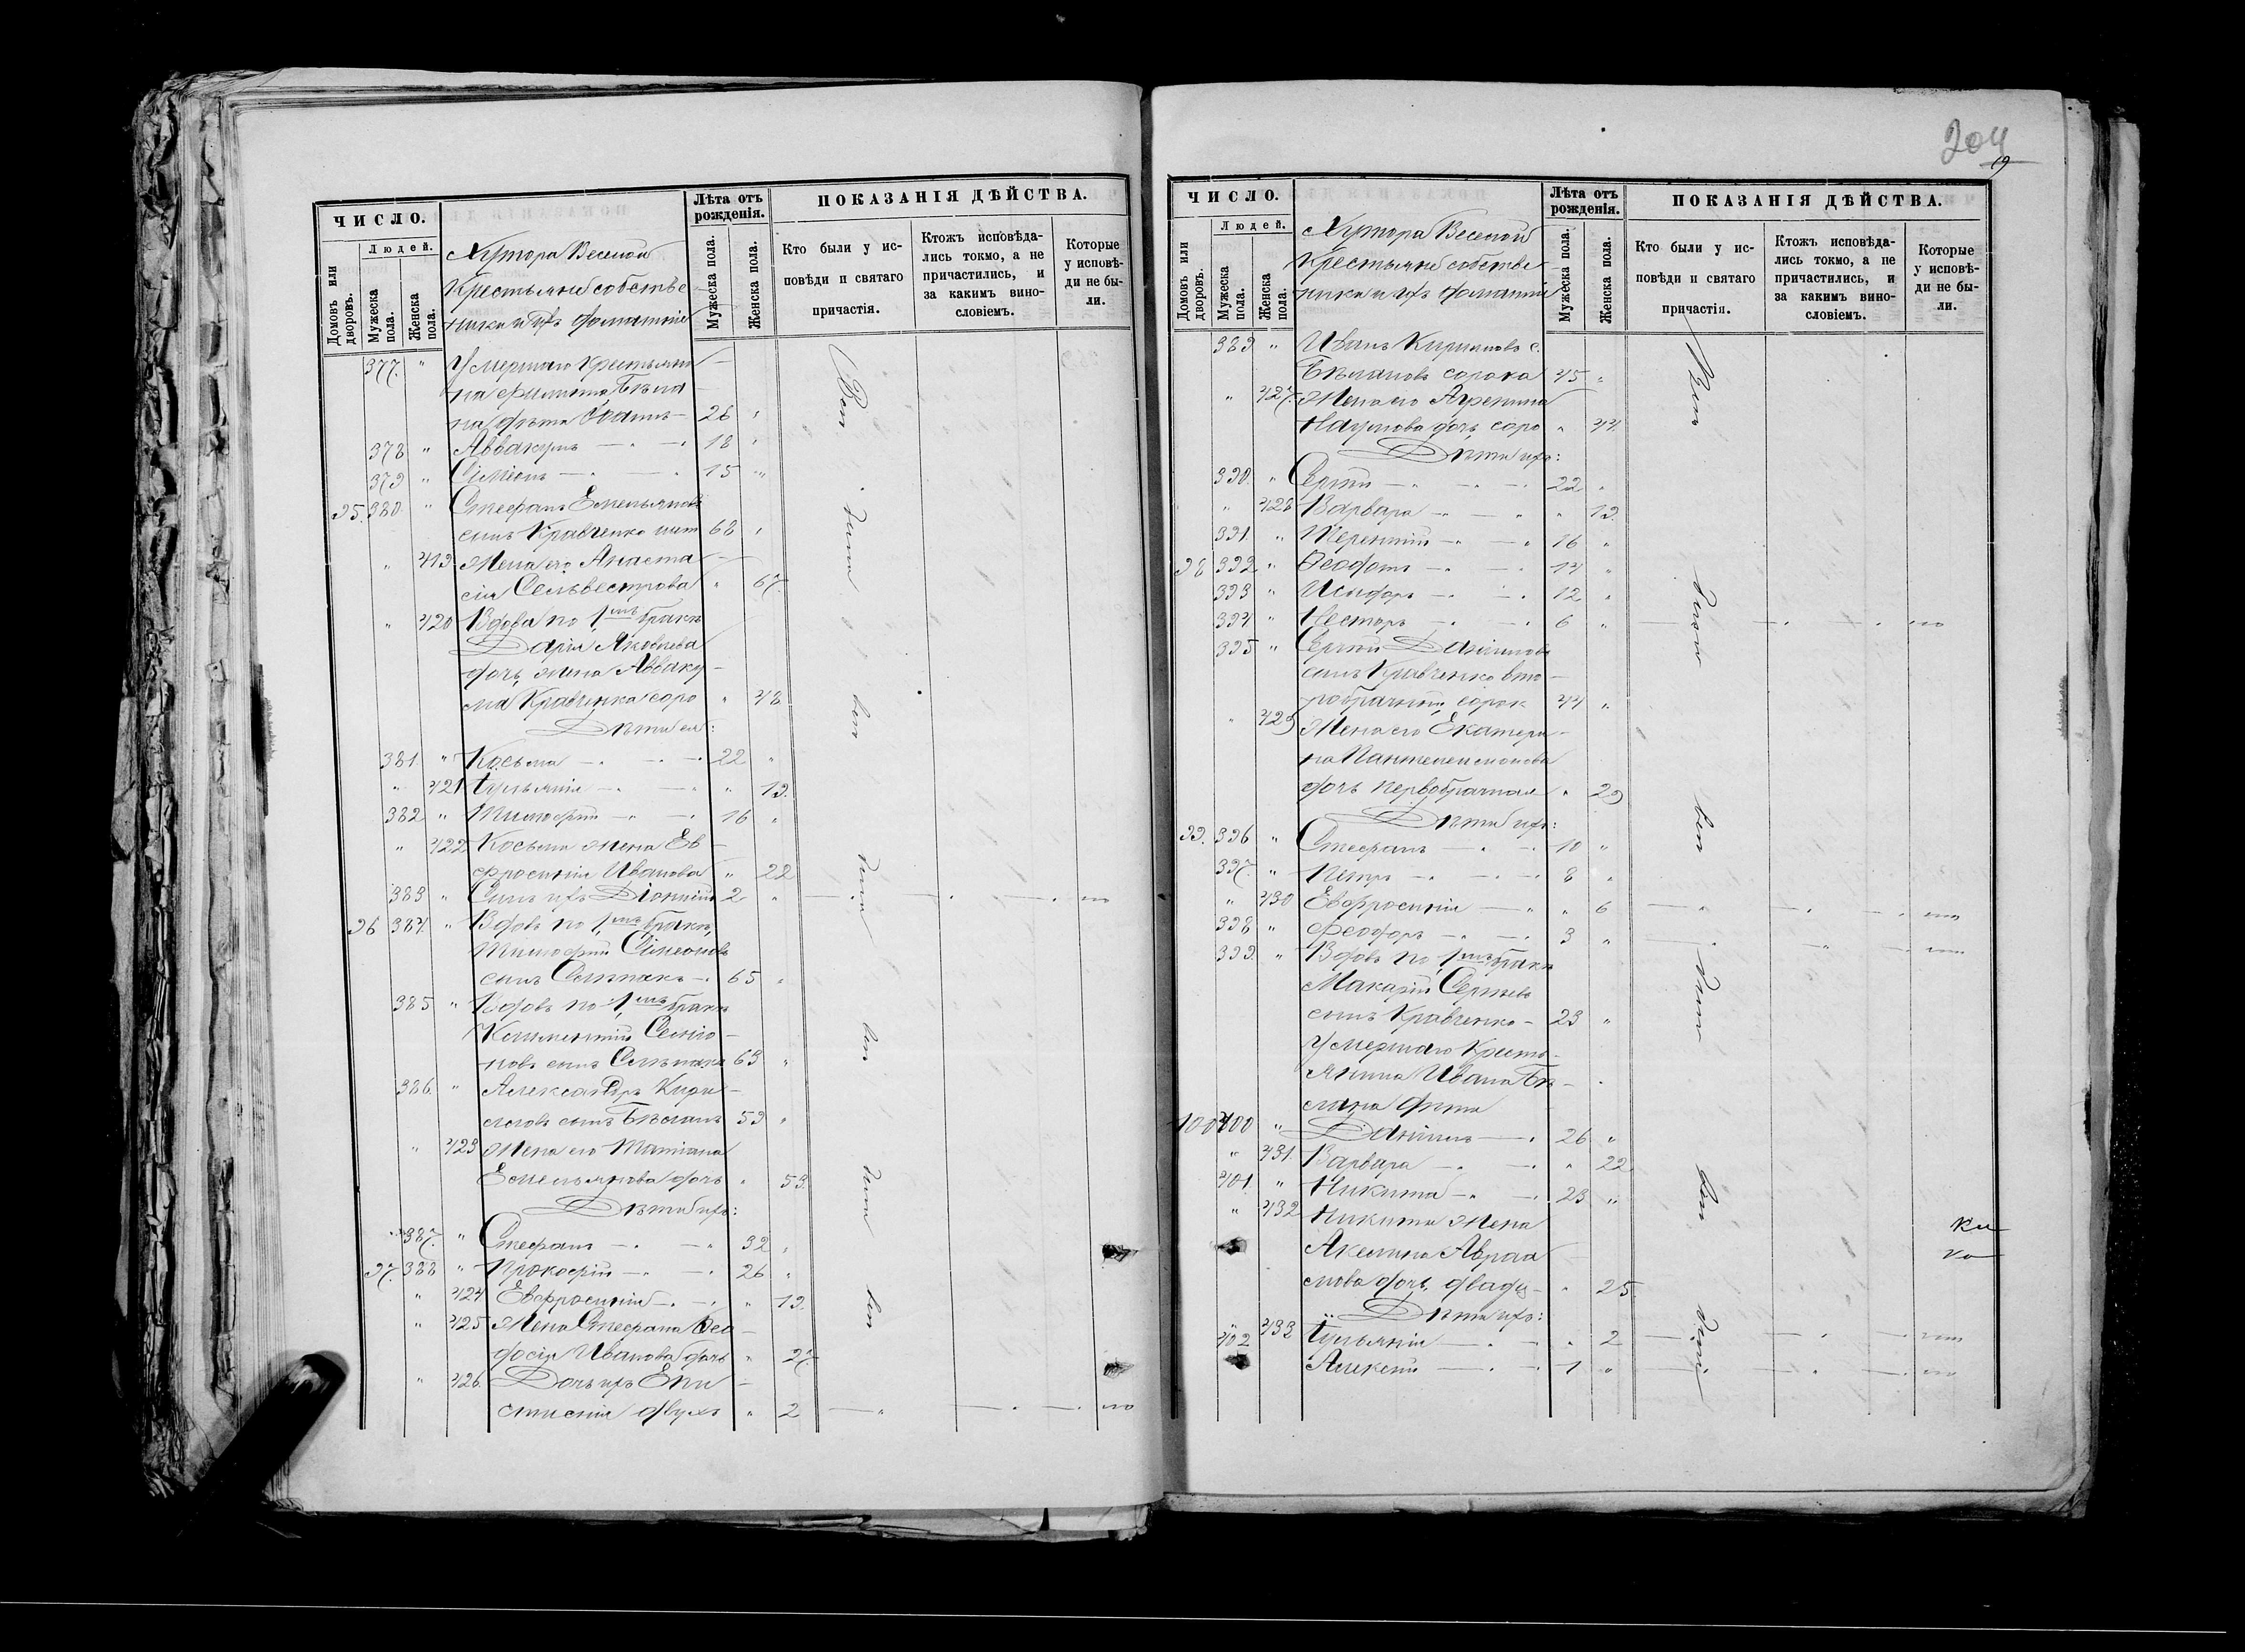 ЧИСЛО.
Людей.
Домовъ или дворовъ.
Мужеска пола.
Женска пола.
Хутора Веселой
Крестьяне собстве-
нники и ихъ домашніе
Лѣта отъ рожденія.
Мужеска пола.
Женска пола.
ПОКАЗАНІЯ ДѢЙСТВА.
Кто были у ис-
повѣди и святаго
причастія.
Ктожъ исповѣда-
лись токмо, а не
причастились, и
за какимъ вино-
словіемъ.
Которые
у исповѣ-
ди не бы-
ли.
377. " Умершаго крестьяни
на Филиппа Бѣла
на дѣти 26 "
378 " Аввакумъ 18 "
379 " Сімеонъ 15 "
95. 380 " Стефанъ Емельяновъ
сынъ Кравченко 68 "
" 419 Жена его Анаста
сія Сельвестрова " 67.
" 420 Вдова по 1мъ бракѣ
Дарія Яковлева
дочь, жена Авваку-
ма Кравченка соро " 48
Дѣти ея:
381. " Косьма 22 "
" 421 Іульянія " 19.
382 " Тимофей 16 "
" 422 Косьмы жена Ев-
фросинія Иванова " 22
383 " Сынъ ихъ Діонисій 2 "
96 384. " Вдовъ по 1мъ бракѣ,
Тимофей Сімеоновъ
сынъ 65 "
385 " Вдовъ по 1мъ бракѣ
Климентій Семіо-
новъ сынъ 63 "
386. " Александръ Кири-
ловъ сынъ Бѣланъ 59 "
" 423 Жена его Татіана
Емельянова дочь " 53.
Дѣти ихъ:
387. " Стефанъ 32 "
97. 388 " Прокофій 26 "
" 424 Евфросинія " 19.
" 425 Жена Стефана Ѳео-
досія Иванова дочь " 27
" 426. Дочь ихъ Епи-
стимія двухъ " 2
204
19
ЧИСЛО.
Людей.
Домовъ или дворовъ.
Мужеска пола.
Женска пола.
Хутора Веселой
Крестьяне собстве-
нники и ихъ домашніе
Лѣта отъ рожденія.
Мужеска пола.
Женска пола.
ПОКАЗАНІЯ ДѢЙСТВА.
Кто были у ис-
повѣди и святаго
причастія.
Ктожъ исповѣда-
лись токмо, а не
причастились, и
за какимъ вино-
словіемъ.
Которые
у исповѣ-
ди не бы-
ли.
389 " Иванъ Кириловъ с.
Бѣлановъ сорока 45 "
" 427. Жена его Агрепина
Наумова дочь соро " 44.
Дѣти ихъ:
390. " Сергій 22 "
" 428 Варвара " 19.
391. " Терентій 16 "
98 392 " Ѳеодотъ 14 "
393 " Исидоръ 12 "
394 " Несторъ 6 "
395 " Сергій Даніиловъ
сынъ Кравченко вто-
робрачный, сорок 44 "
" 429 Жена его Екатери-
на Пантелеимонова
дочь первобрачная " 29
Дѣти ихъ:
99. 396 " Стефанъ 10 "
397. " Петръ 8 "
" 430 Евфросинія " 6
398 " Феодоръ 3 "
399. " Вдовъ по 1мъ бракѣ
Макарій Сергѣевъ
сынъ Кравченко - 23 "
Умершаго Кресть-
янина Ивана Бѣ-
лана дѣти
100 400 " Даніилъ 26 "
" 431. Варвара " 22
401. " Никита 23 "
" 432 Никиты жена
Акелина Авраа
мова дочь, двадц- " 25.
Дѣти ихъ:
" 433 Іульянія " 2
402 " Алексій 1 "